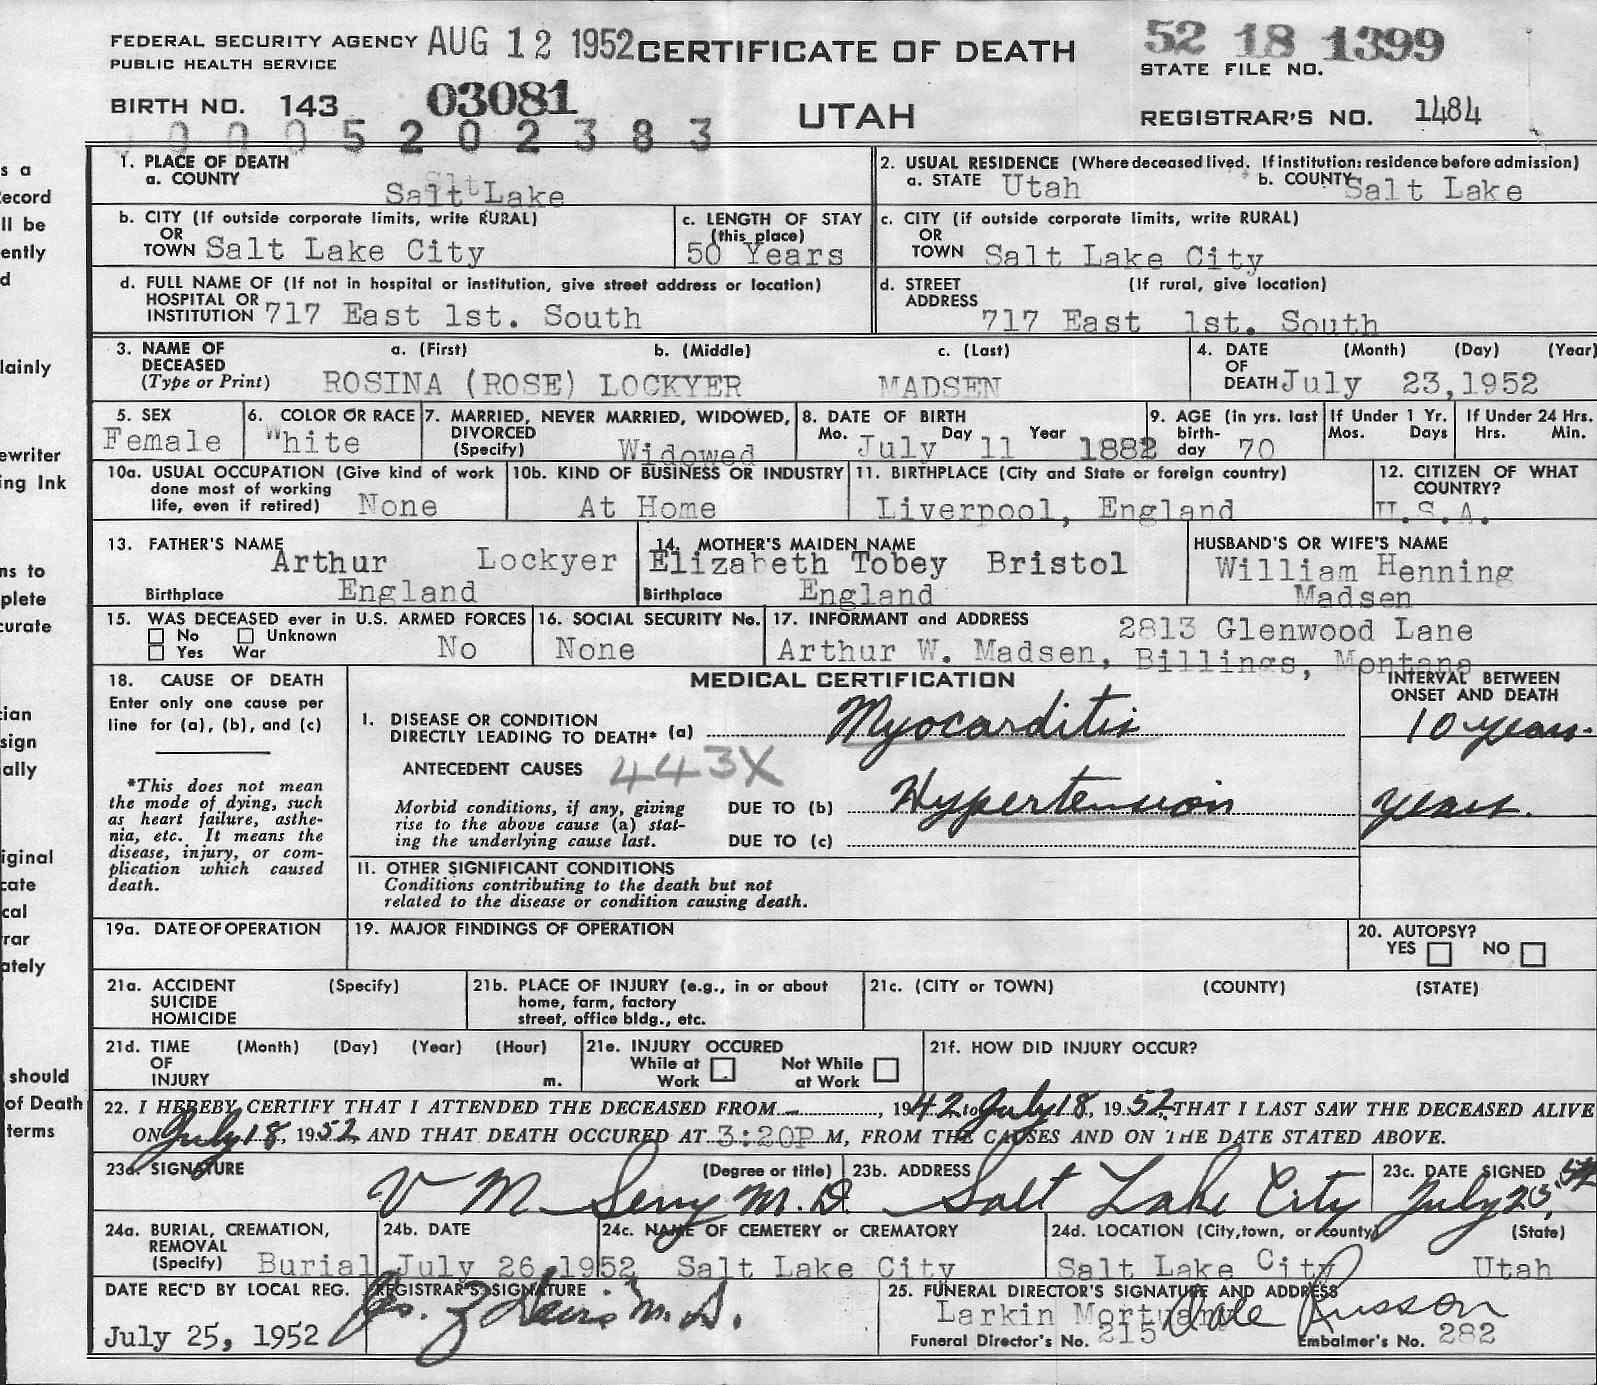 FEDERAL SECURITY AGENCY AUG 12 1952 CERTIFICATE OF DEATH 52 18 1399
PUBLIC HEALTH SERVICE STATE FILE NO.
BIRTH NO. 143 03081 UTAH REGISTRAR'S NO. 1484
0 0 0 5 2 0 2 3 8 3
1. PLACE OF DEATH
a. COUNTY Salt Lake
2. USUAL RESIDENCE (Where deceased lived. If institution: residence before admission)
a. STATE Utah b. COUNTY Salt Lake
b. CITY (If outside corporate limits, write RURAL)
OR
TOWN Salt Lake City
c. LENGTH OF STAY
(this place)
50 Years
c. CITY (if outside corporate limits, write RURAL)
OR
TOWN Salt Lake City
d. FULL NAME OF (If not in hospital or institution, give street address or location)
HOSPITAL OR
INSTITUTION 717 East 1st. South
d. STREET (If rural, give location)
ADDRESS
717 East 1st. South
3. NAME OF a. (First) b. (Middle) c. (Last)
DECEASED
(Type or Print) ROSINA (ROSE) LOCKYER MADSEN
4. DATE (Month) (Day) (Year)
OF
DEATH July 23, 1952
5. SEX
Female
6. COLOR OR RACE
White
7. MARRIED, NEVER MARRIED, WIDOWED,
DIVORCED
(Specify) Widowed
8. DATE OF BIRTH
Mo. July Day 11 Year 1882
9. AGE (in yrs. last
birth-
day 70
If Under 1 Yr.
Mos. Days
If Under 24 Hrs.
Hrs. Min.
10a. USUAL OCCUPATION (Give kind of work
done most of working
life, even if retired) None
10b. KIND OF BUSINESS OR INDUSTRY
At Home
11. BIRTHPLACE (City and State or foreign country)
Liverpool, England
12. CITIZEN OF WHAT
COUNTRY?
U.S.A.
13. FATHER'S NAME
Arthur Lockyer
Birthplace England
14. MOTHER'S MAIDEN NAME
Elizabeth Tobey Bristol
Birthplace England
HUSBAND'S OR WIFE'S NAME
William Henning
Madsen
15. WAS DECEASED ever in U.S. ARMED FORCES
No Unknown
Yes War No
16. SOCIAL SECURITY No.
None
17. INFORMANT and ADDRESS 2813 Glenwood Lane
Arthur W. Madsen, Billings, Montana
18. CAUSE OF DEATH
Enter only one cause per
line for (a), (b), and (c)
*This does not mean
the mode of dying, such
as heart failure, asthe-
nia, etc. It means the
disease, injury, or com-
plication which caused
death.
MEDICAL CERTIFICATION
INTERVAL BETWEEN
ONSET AND DEATH
I. DISEASE OR CONDITION
DIRECTLY LEADING TO DEATH* (a) Myocarditis 10 years.
ANTECEDENT CAUSES 443X
Morbid conditions, if any, giving
rise to the above cause (a) stat-
ing the underlying cause last.
DUE TO (b) Hypertension years.
DUE TO (c)
II. OTHER SIGNIFICANT CONDITIONS
Conditions contributing to the death but not
related to the disease or condition causing death.
19a. DATE OF OPERATION
19. MAJOR FINDINGS OF OPERATION
20. AUTOPSY?
YES NO
21a. ACCIDENT (Specify)
SUICIDE
HOMICIDE
21b. PLACE OF INJURY (e.g., in or about
home, farm, factory
street, office bldg., etc.
21c. (CITY or TOWN) (COUNTY) (STATE)
21d. TIME (Month) (Day) (Year) (Hour)
OF
INJURY m.
21e. INJURY OCCURED
While at Work Not While at Work
21f. HOW DID INJURY OCCUR?
22. I HEREBY CERTIFY THAT I ATTENDED THE DECEASED FROM , 1942 to July 18, 1952, THAT I LAST SAW THE DECEASED ALIVE
ON July 18, 1952 AND THAT DEATH OCCURED AT 3:20P M, FROM THE CAUSES AND ON THE DATE STATED ABOVE.
23a. SIGNATURE (Degree or title)
V M M.D.
23b. ADDRESS
Salt Lake City
23c. DATE SIGNED
July 25, 52
24a. BURIAL, CREMATION,
REMOVAL
(Specify) Burial
24b. DATE
July 26, 1952
24c. NAME OF CEMETERY or CREMATORY
Salt Lake City
24d. LOCATION (City, town, or county) (State)
Salt Lake City Utah
DATE REC'D BY LOCAL REG.
July 25, 1952
REGISTRAR'S SIGNATURE
M.D.
25. FUNERAL DIRECTOR'S SIGNATURE AND ADDRESS
Larkin Mortuary Dale Russon
Funeral Director's No. 215 Embalmer's No. 282
s a
ecord
ll be
ently
d
lainly
ewriter
ing Ink
ns to
plete
curate
cian
sign
ally
iginal
cate
cal
rar
ately
should
of Death
terms